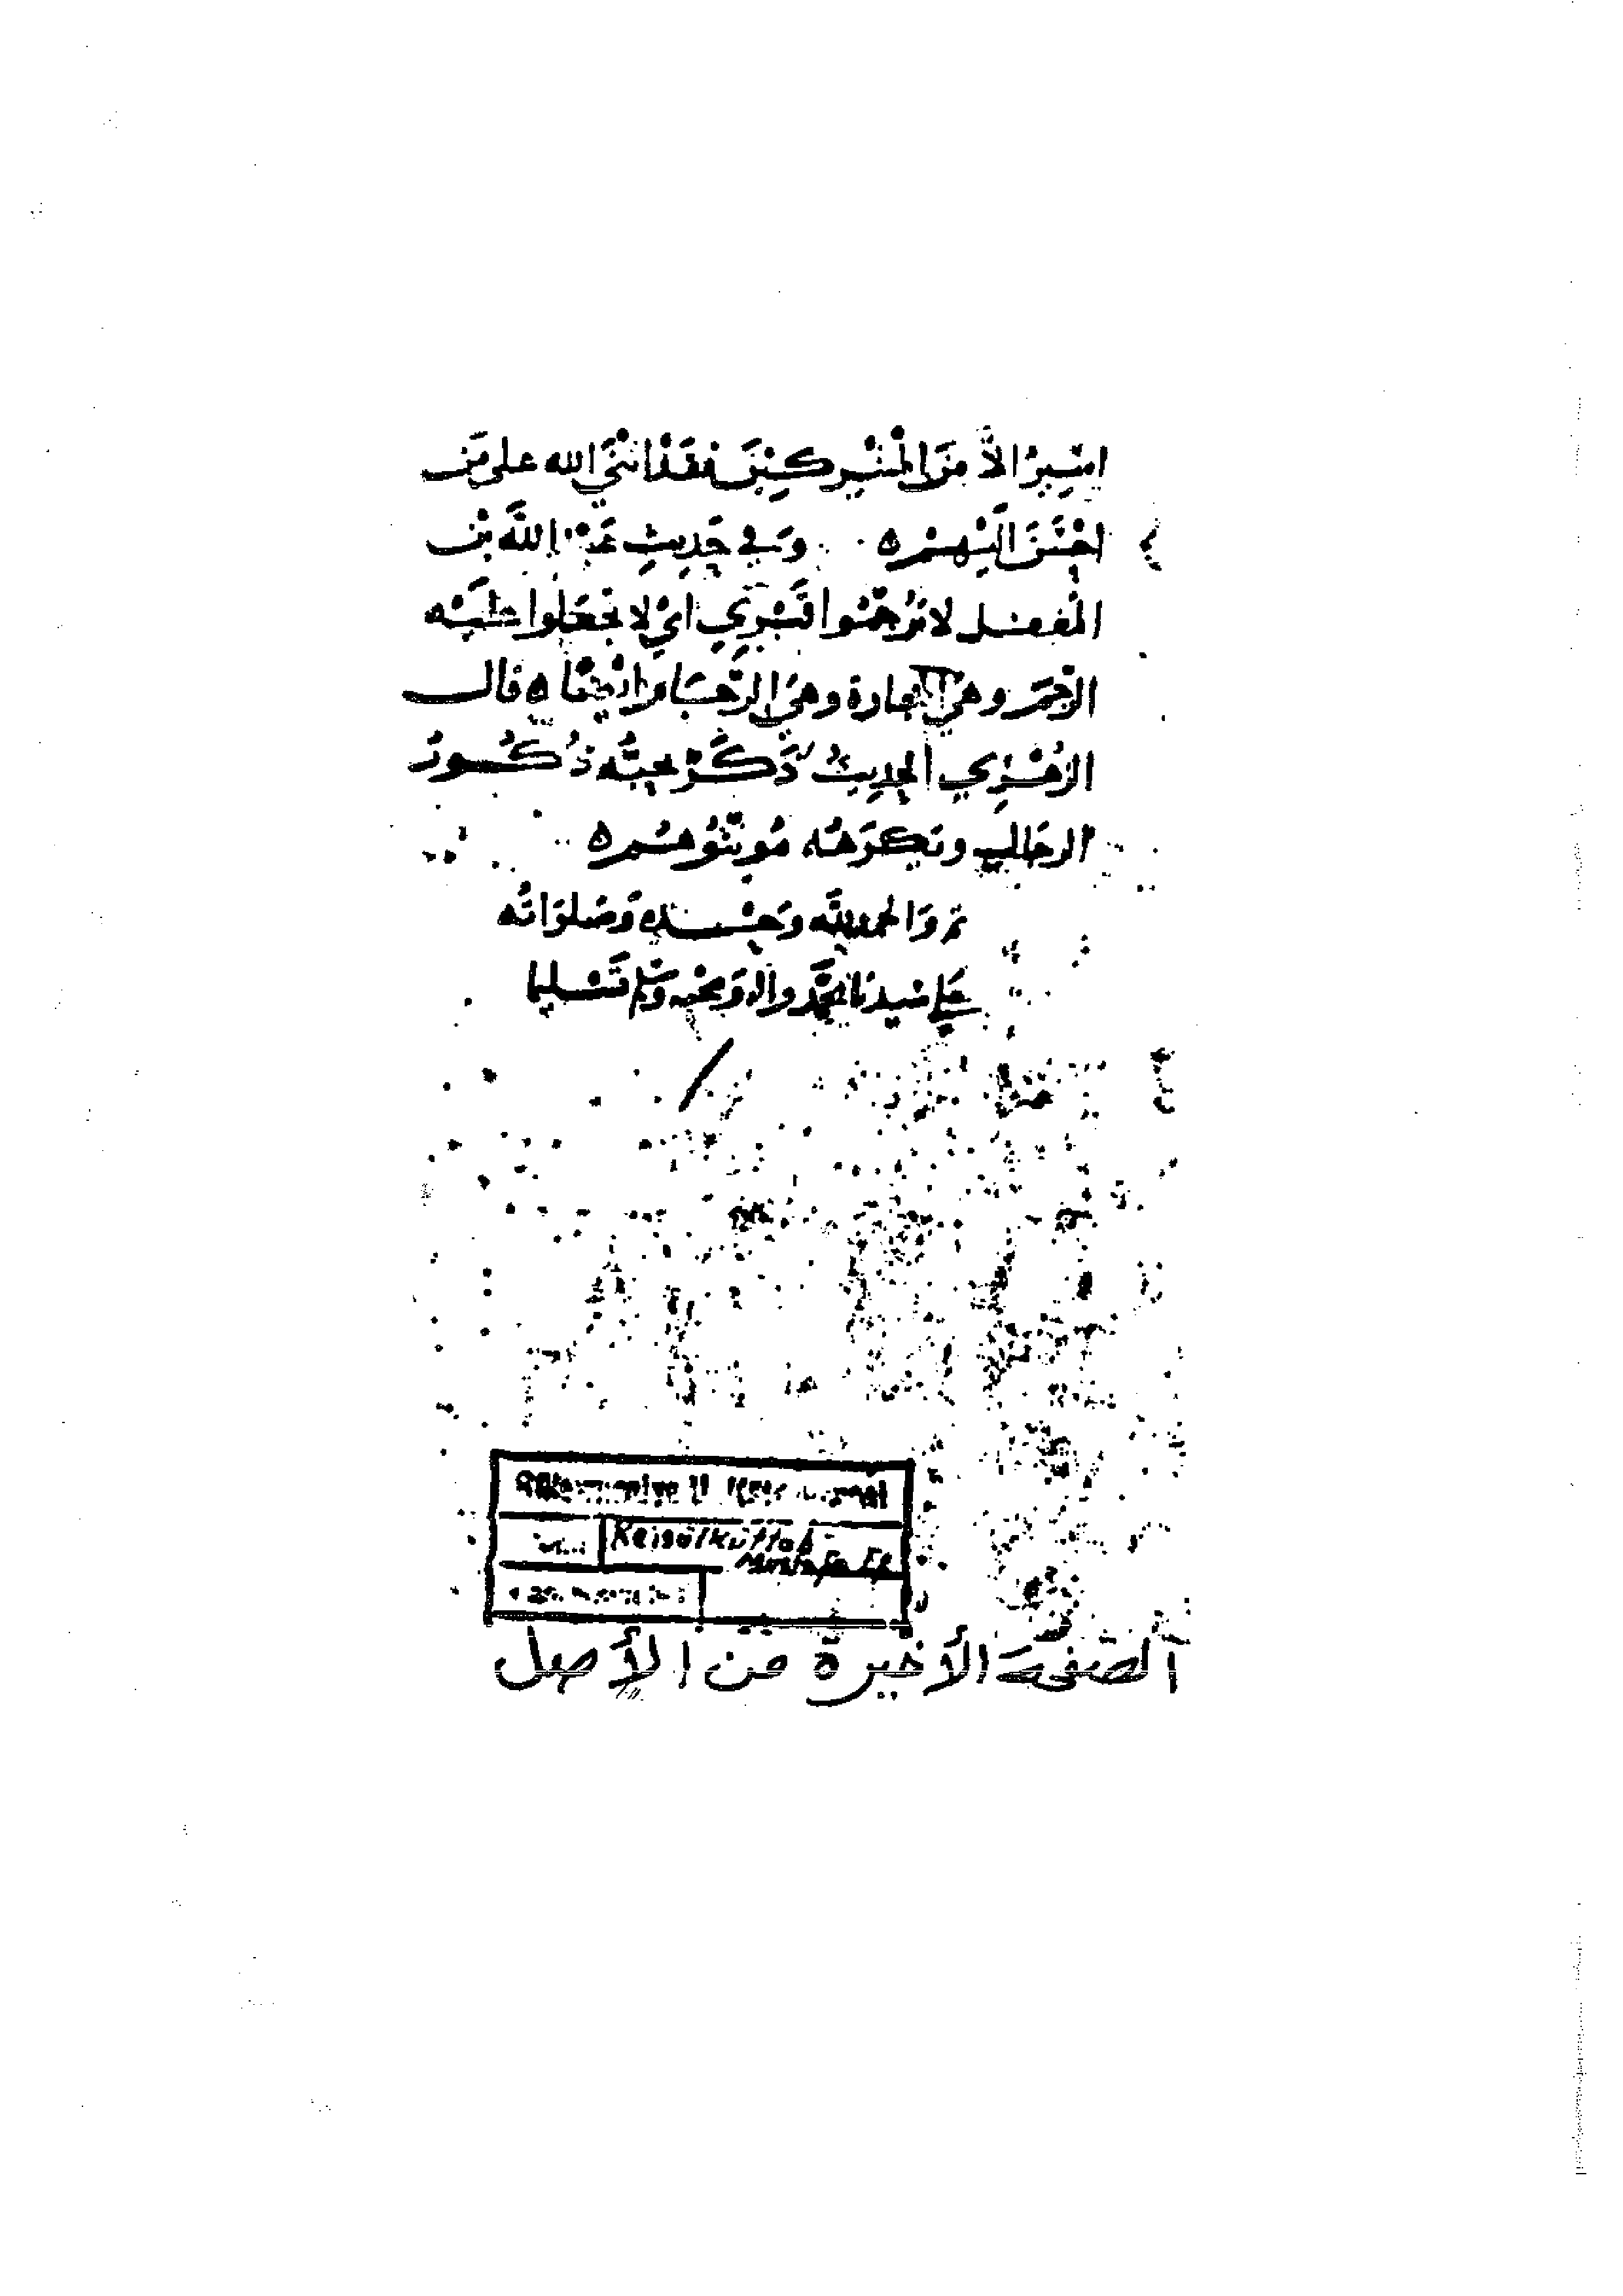 اسير الا من المشركين فقد اثنى الله على من
احسن اليهم ٥ وفي حديث عبد الله بن
المغفل لا ترجموا قبري اي لا تجعلوا عليه
الرجم وهي الحجارة وهي الرجام ايضا ٥ قال
الزهري الحديث ذكر يحبه ذكور
الرجال ويكرهه مؤنثوهم ٥
تم والحمد لله وحده وصلواته
على سيدنا محمد واله وصحبه وسلم تسليما
Reisülküttab
Mustafa Ef
الصفحة الأخيرة من الأصل